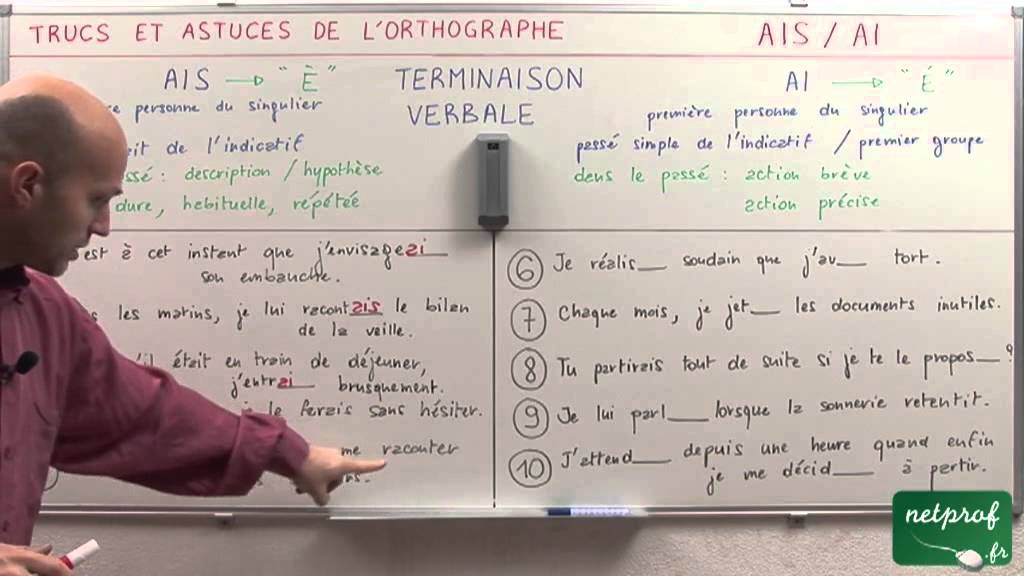 TRUCS ET ASTUCES DE L'ORTHOGRAPHE
AIS / AI
AIS → "È"
personne du singulier
de l'indicatif
description / hypothèse
dure, habituelle, répétée
TERMINAISON
VERBALE
AI → "É"
première personne du singulier
passé simple de l'indicatif / premier groupe
dans le passé : action brève
action précise
est à cet instant que j'envisageai
son embauche.
les matins, je lui racontais le bilan
de la veille.
était en train de déjeuner,
j'entrai brusquement.
le ferais sans hésiter.
me raconter
6 Je réalis__ soudain que j'av__ tort.
7 Chaque mois, je jet__ les documents inutiles.
8 Tu partirais tout de suite si je te le propos__ ?
9 Je lui parl__ lorsque la sonnerie retentit.
10 J'attend__ depuis une heure quand enfin
je me décid__ à partir.
netprof
.fr